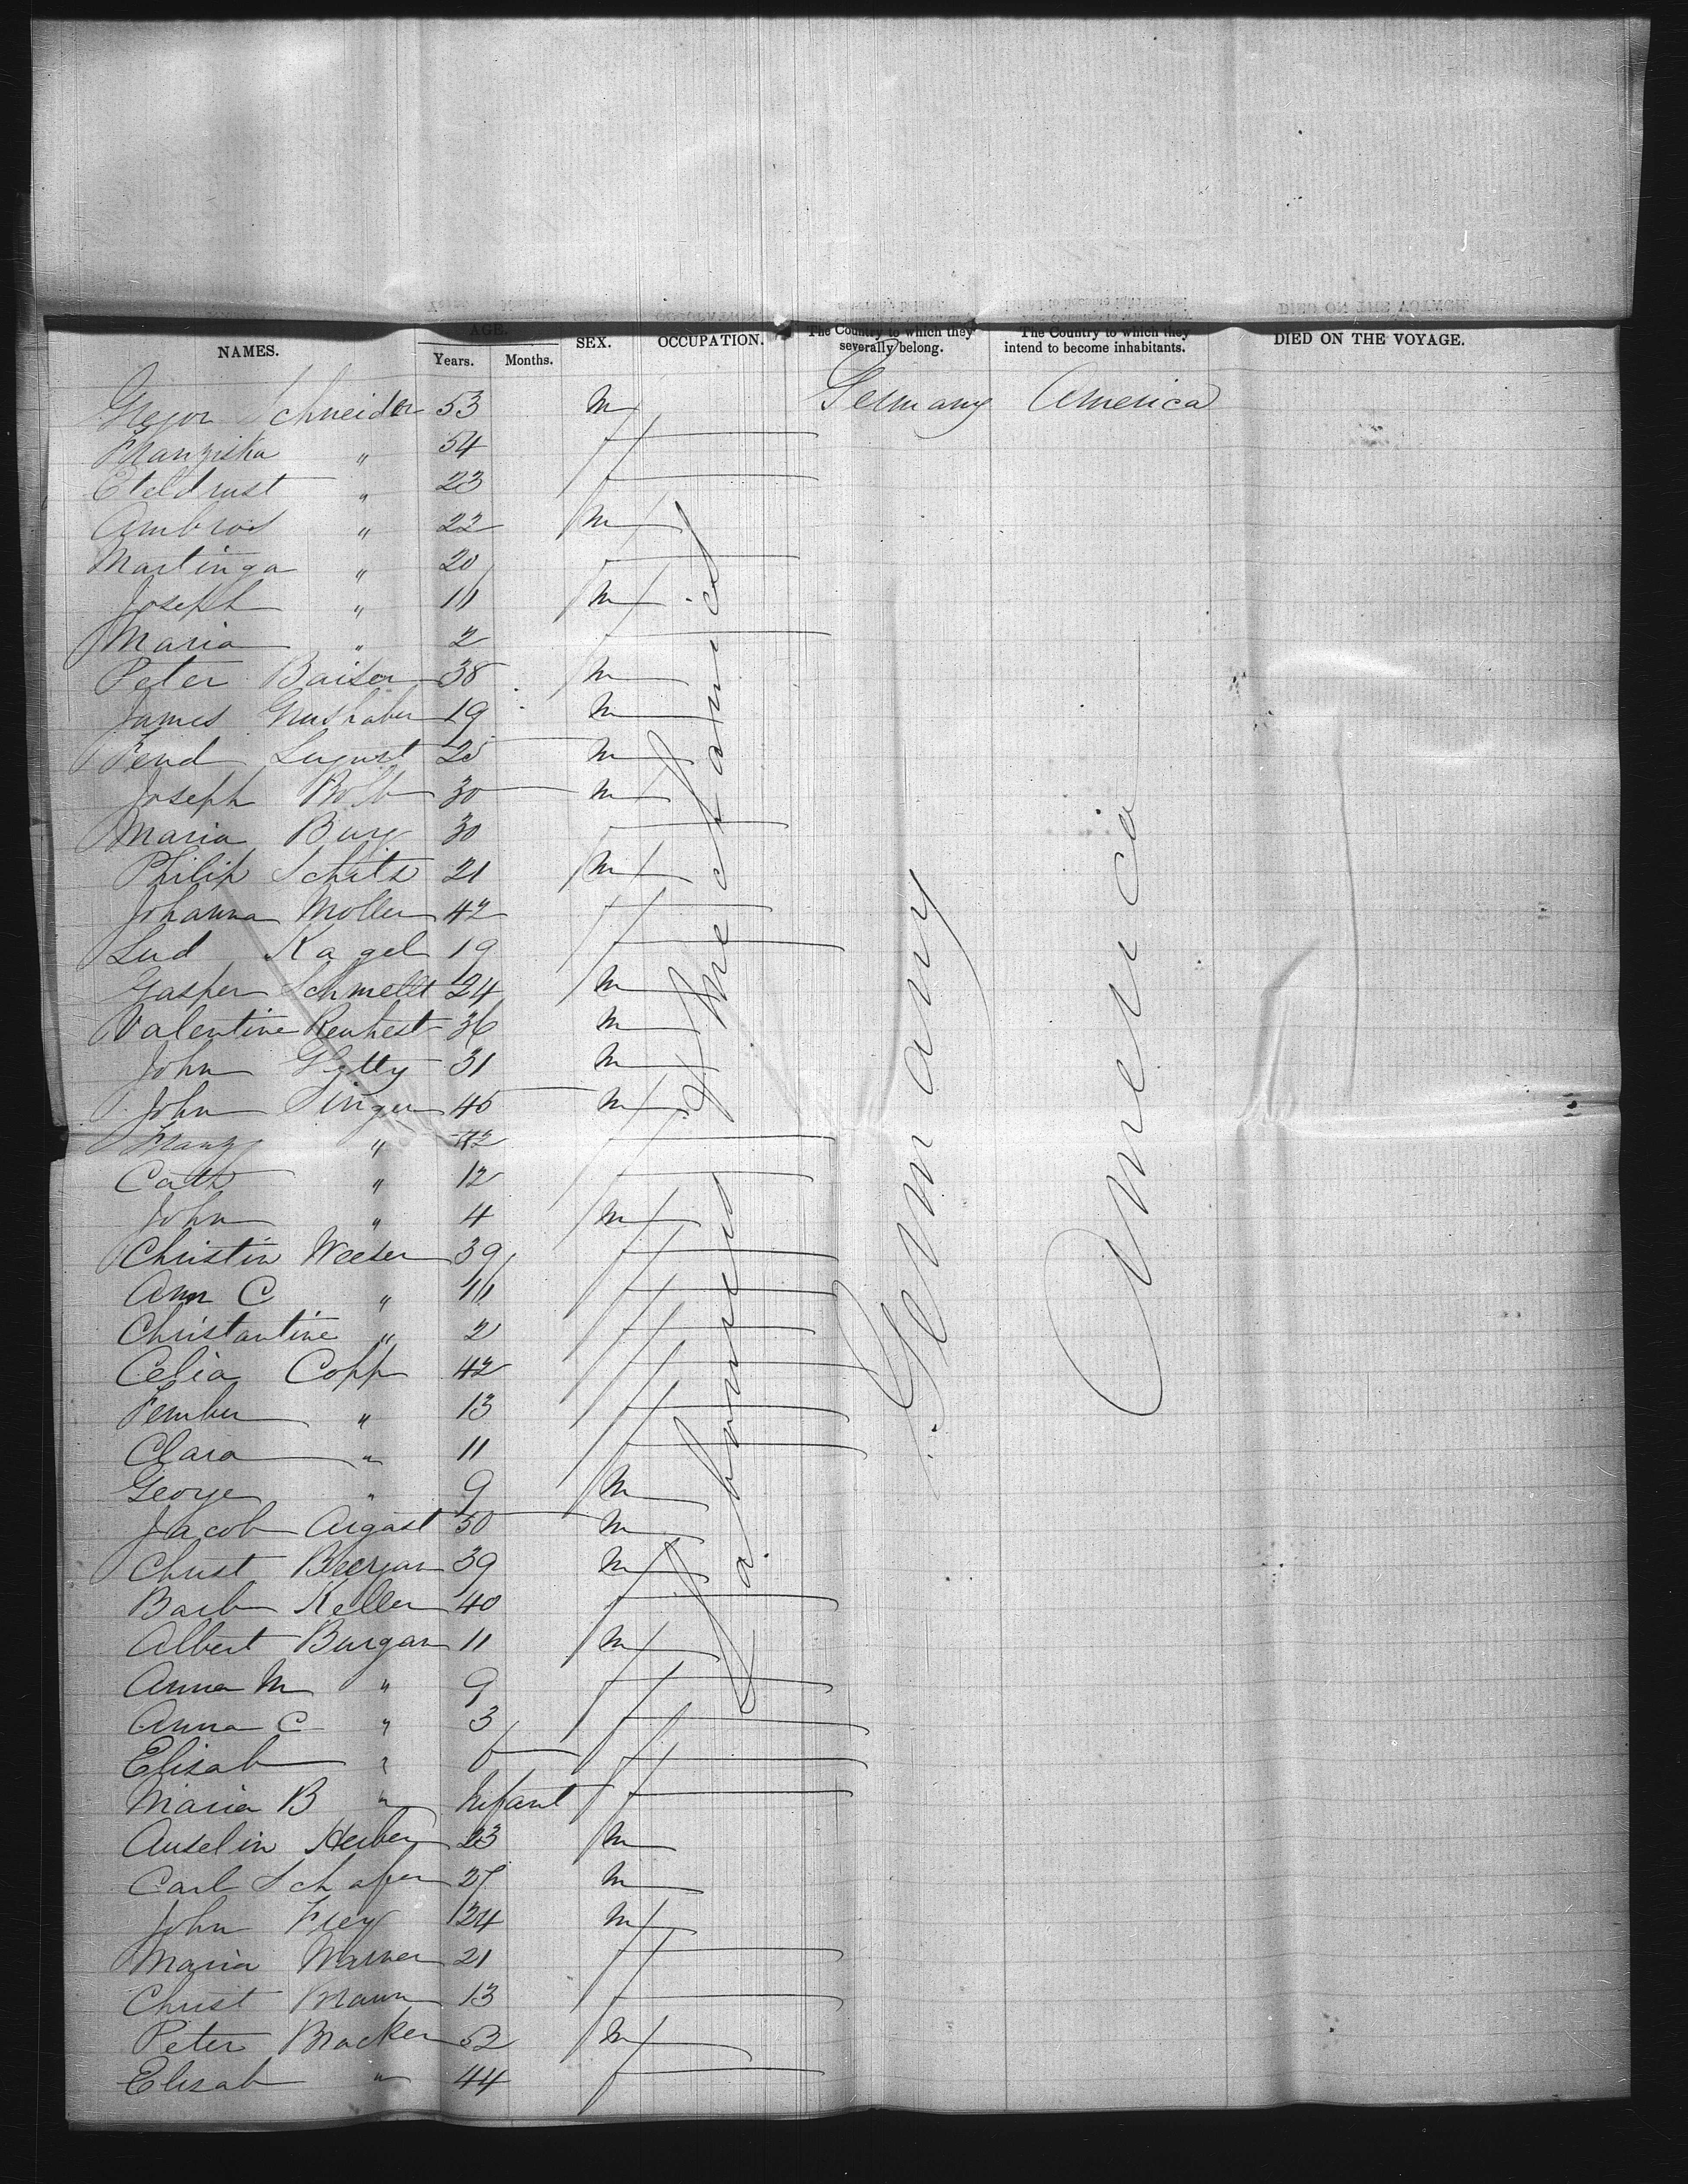 NAMES. AGE. SEX. OCCUPATION. The Country to which they severally belong. The Country to which they intend to become inhabitants. DIED ON THE VOYAGE.
Years. Months.
Gregor Schneider 53 m Germany America
Franziska " 54 f
" 23 f
Ambros " 22 m
Martinga " 20 f
Joseph " 11 m
Maria " 2 f
Peter Baiser 38 m
James 19 m
August 25 m
Joseph 30 m
Maria Burg 30 f
Philip Schits 21 m
Johanna Moller 42 f
Lud Kagel 19 f
Gasper Schmelt 24 m
Valentine 36 m
John Getty 31 m
John Singer 45 m
Franz " 42 f
Cath " 12 f
John " 4 m
Christin Weeser 39 f
Ann C " 11 f
Christantine " 2 f
Celia Copp 42 f
" 13 f
Clara " 11 f
George " 9 m
Jacob August 50 m
Christ 39 m
Barb Keller 40 f
Albert Burgan 11 m
Anna M " 9 f
Anna C " 3 f
Elisab " f
Maria B " Infant f
Anselin 23 m
Carl Schafer 27 m
John Frey 24 m
Maria Warner 21 f
Christ 13 f
Peter Bracker 52 m
Elisab " 44 f
& Mechanics
Farmers
Germany
America